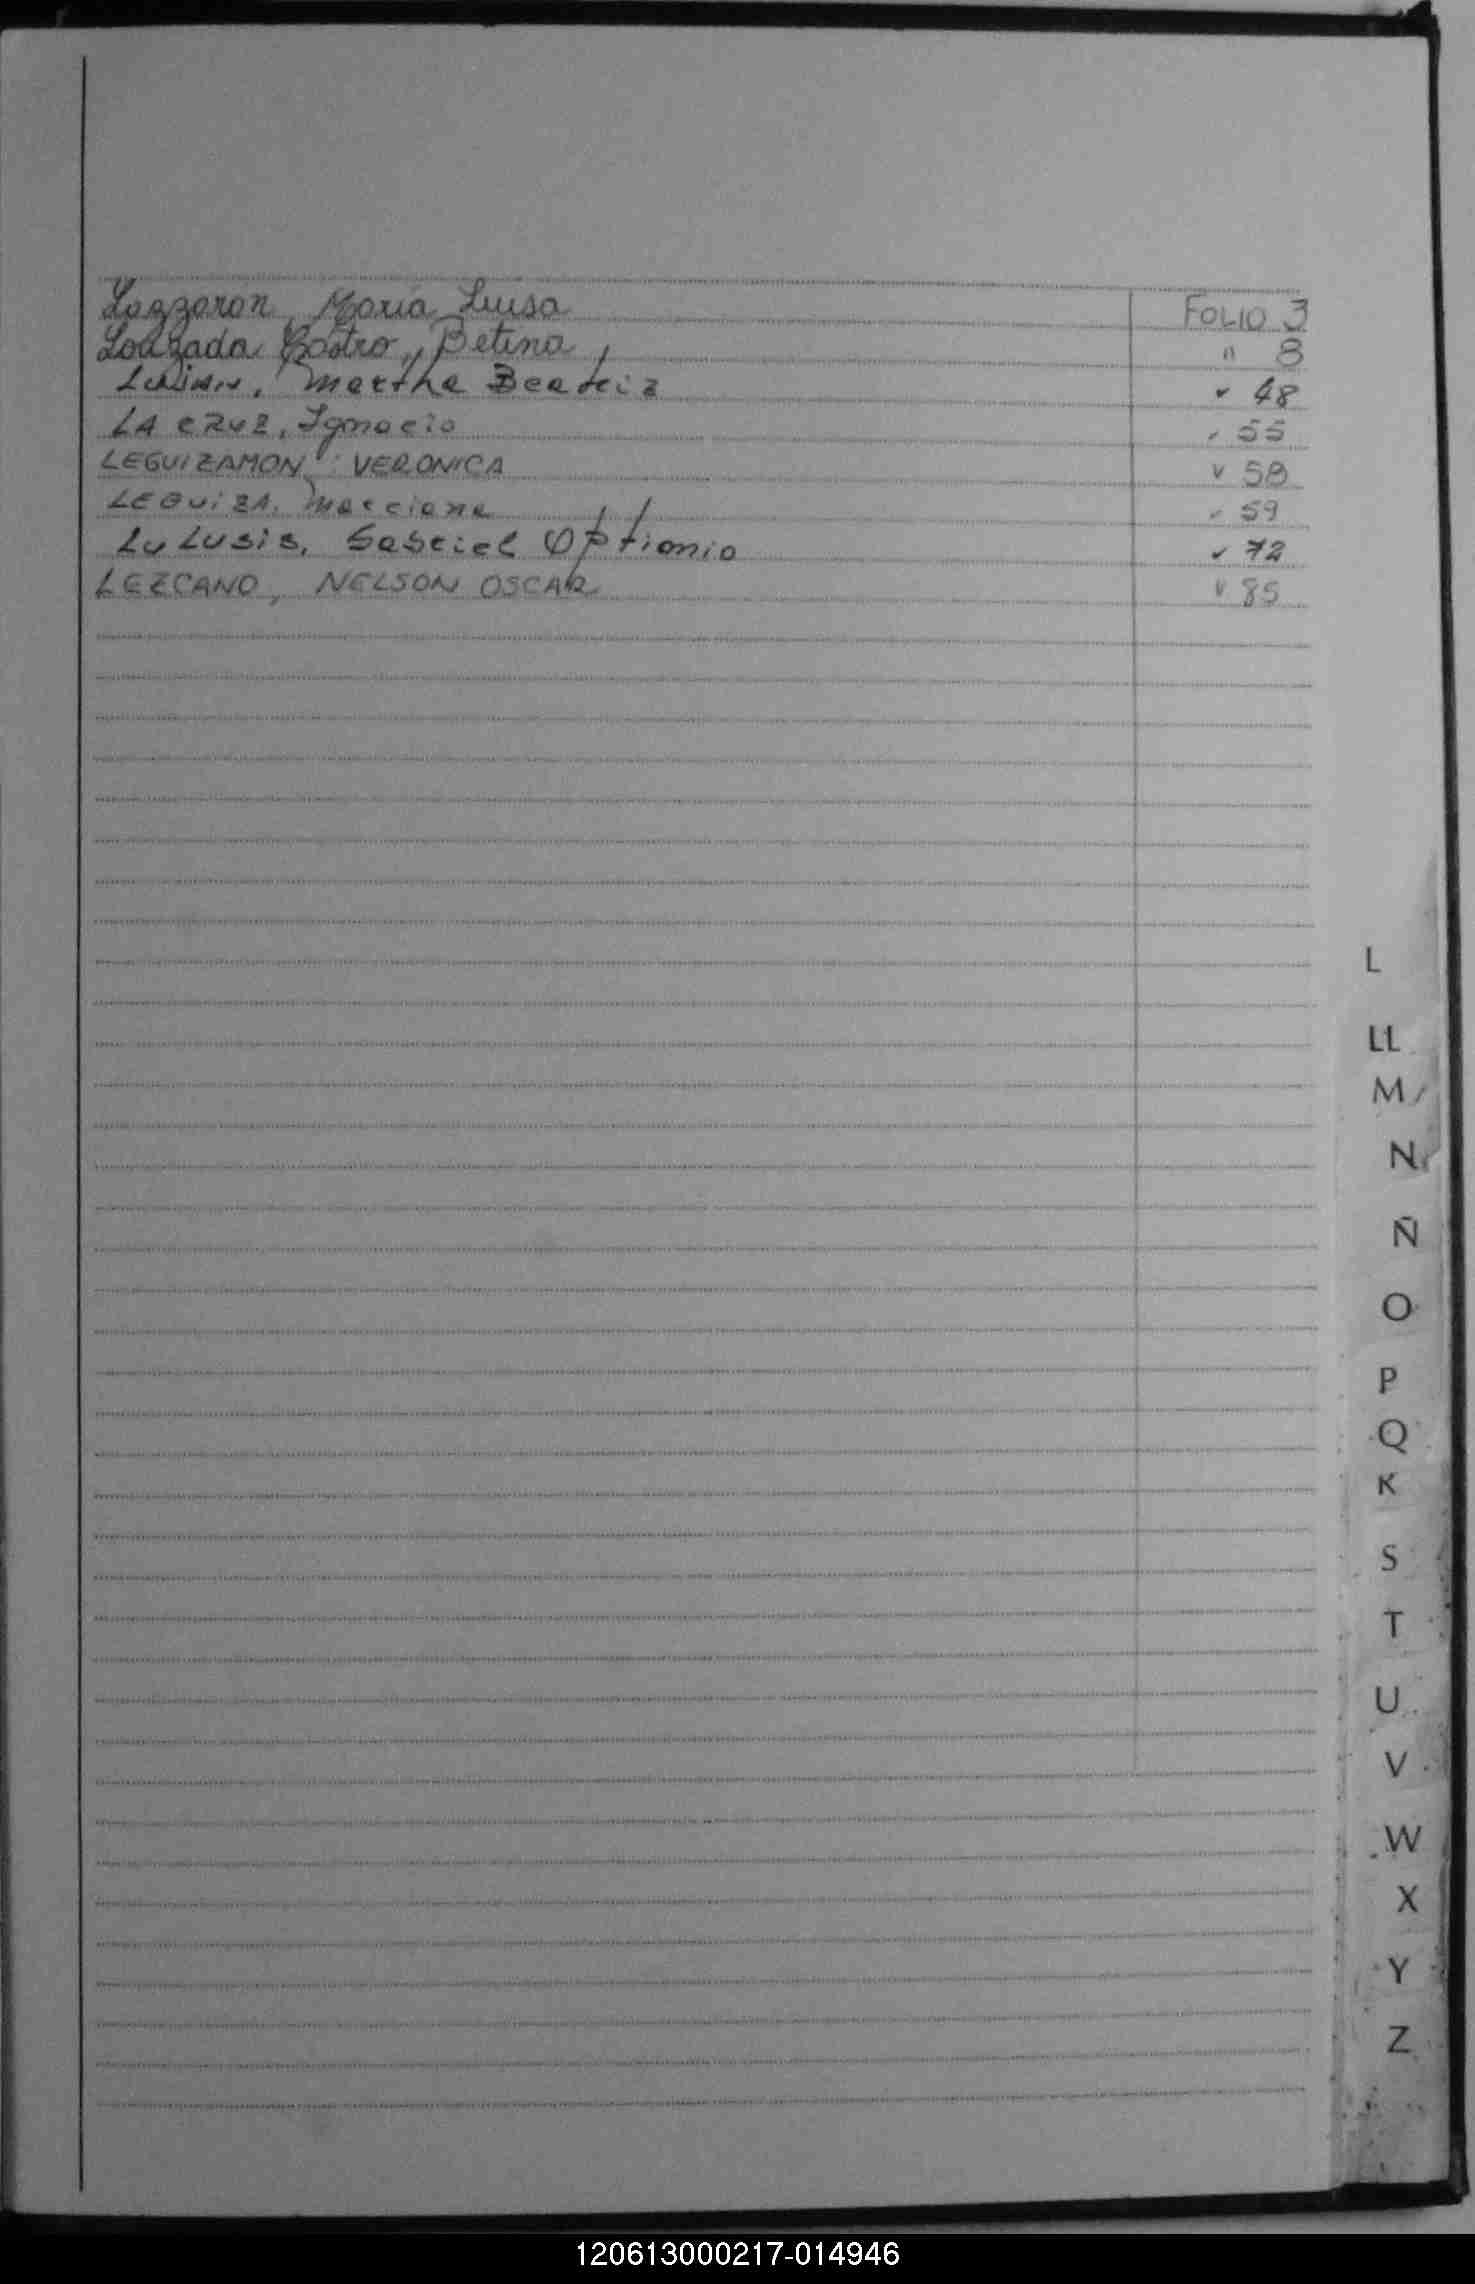 Lazzaron, María Luisa FOLIO 3
Louzada Castro, Betina, " 8
Lujan, Martha Beatriz " 48
LA CRUZ, Ignacio " 55
LEGUIZAMON, VERONICA " 58
LEGUIZA, Marciana " 59
Gabriel " 72
LEZCANO, NELSON OSCAR " 85
L
LL
M
N
Ñ
O
P
Q
K
S
T
U
V
W
X
Y
Z
120613000217-014946